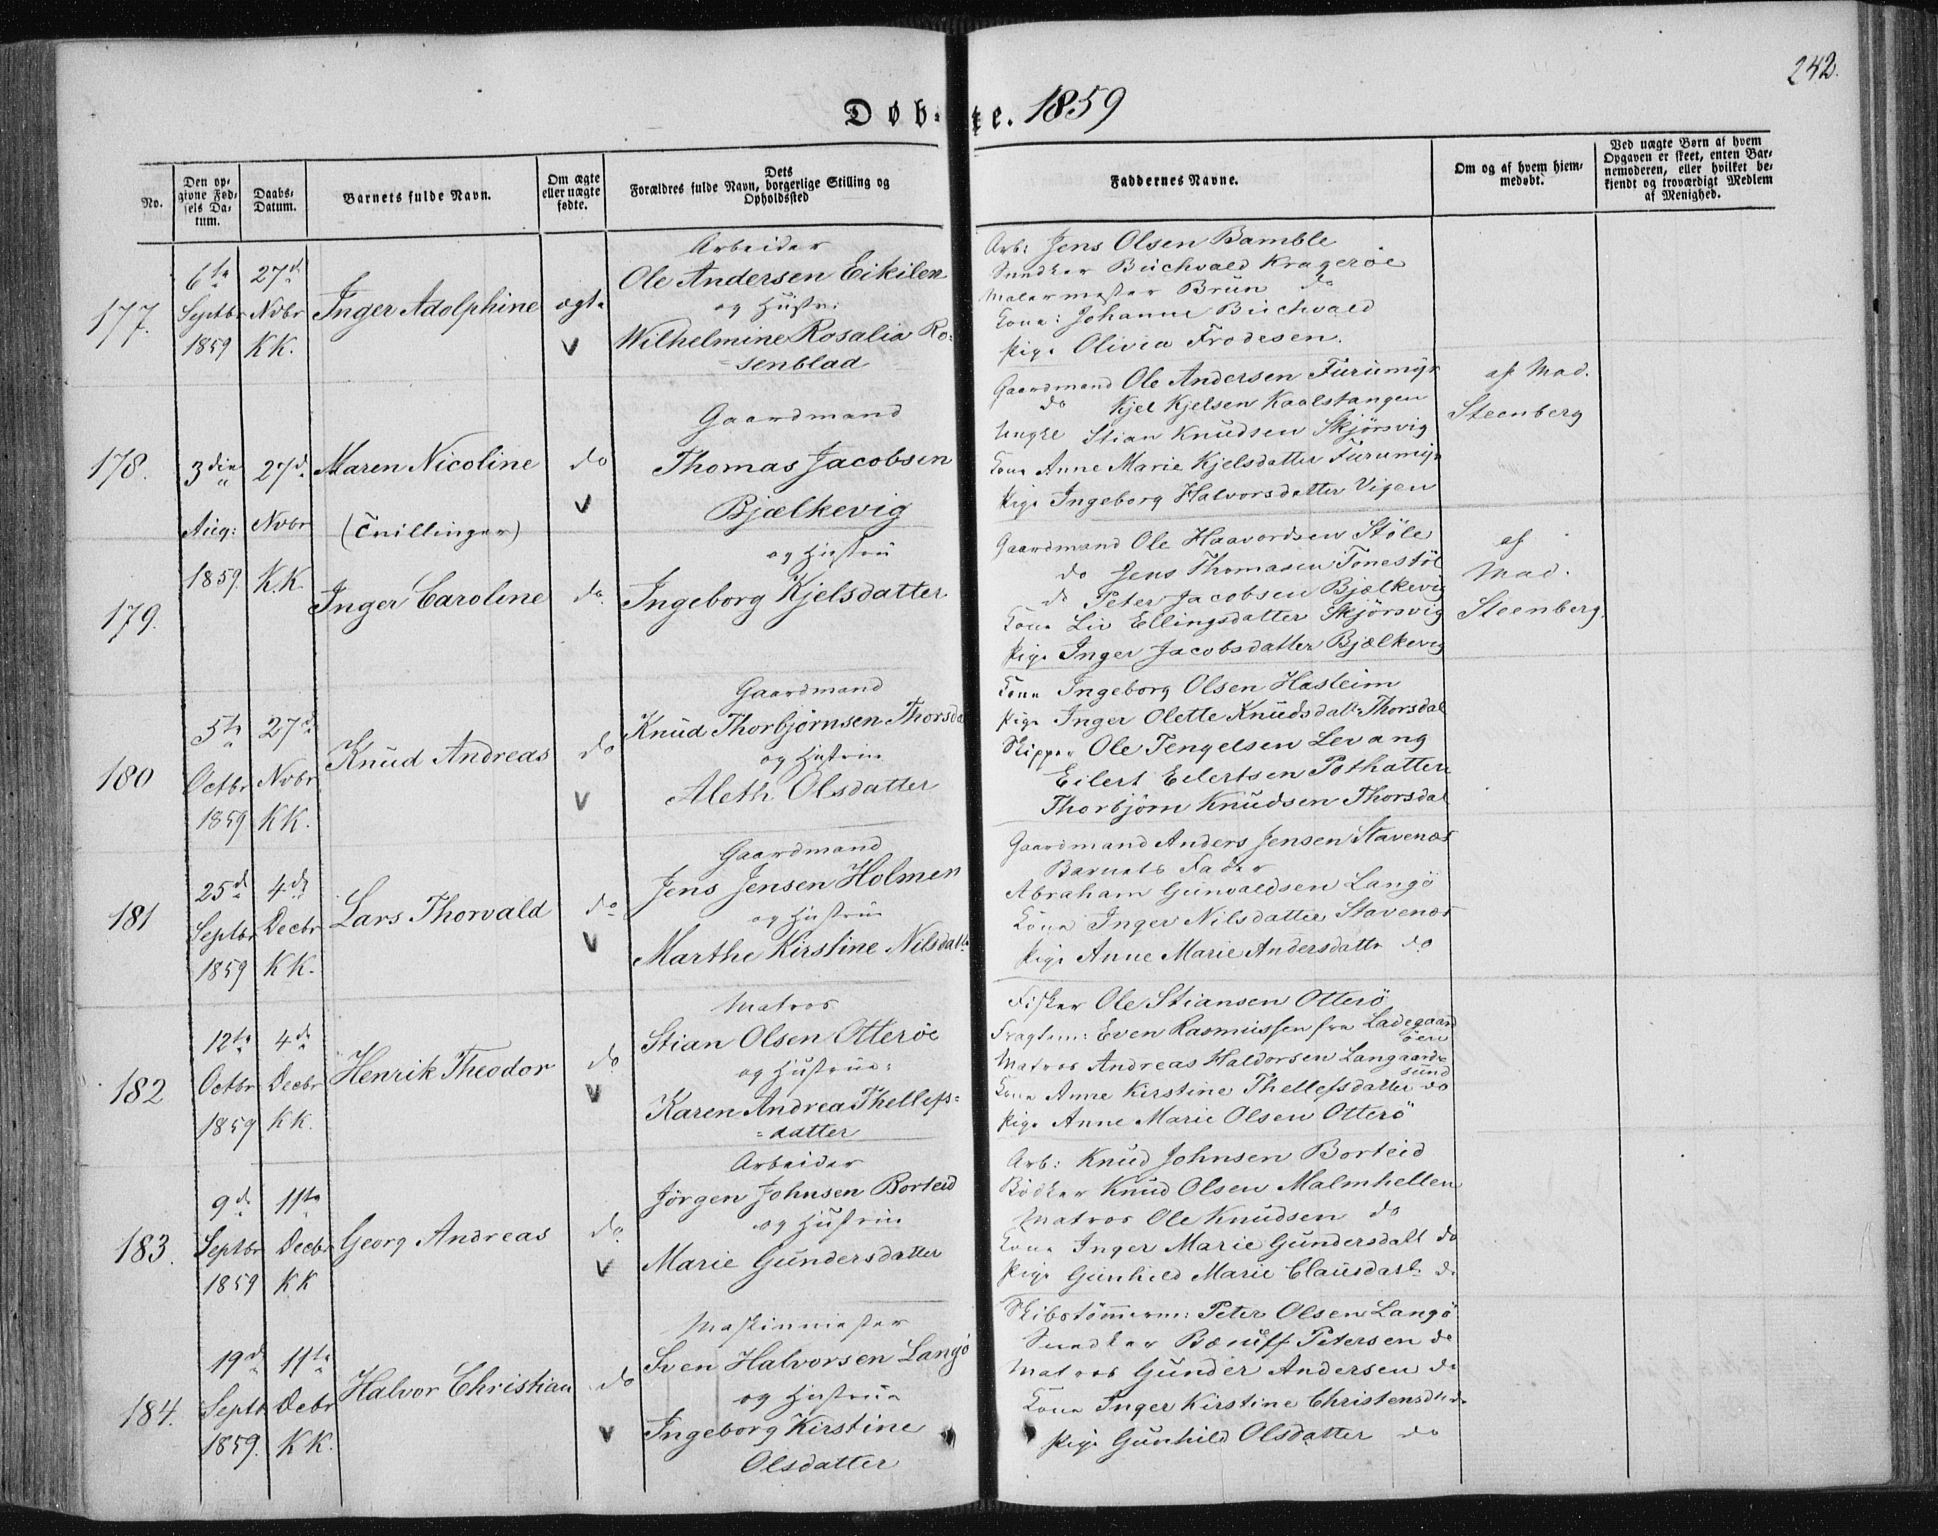 242.
Døb- te. 1859
No.
Den op-
givne Fød-
sels Da-
tum.
Daabs-
Datum.
Barnets fulde Navn.
Om ægte
eller uægte
fødte.
Dets
Forældres fulde Navn, borgerlige Stilling og
Opholdssted
Faddernes Navne.
Om og af hvem hjem-
medøbt.
Ved uægte Børn af hvem
Opgaven er skeet, enten Bar-
nemoderen, eller hvilket be-
kjendt og troværdigt Medlem
af Menighed.
177.
6te
Septbr
1859
27de
Nvbr
KK.
Inger Adolphine
ægte
V
Arbeider
Ole Andersen Eikilen
og Hustr:
Wilhelmine Rosalia Ro-
senblad
Arb: Jens Olsen Bamble
Snedker Buchvald Kragerøe
Malermester Brun do
Kone: Johanne Buchvald
Pige Olivia Frodesen.
178.
3die
Aug:
1859.
27de
Nvbr
K.K.
Maren Nicoline
(Tvillinger)
do
V
Gaardmand
Thomas Jacobsen
Bjælkevig
og Hustru
Ingeborg Kjelsdatter
Gaardmand Ole Andersen Furumyr
do Kjel Kjelsen Kaalstangen
Ungkl Stian Knudsen Skjørsvig
Kone Anne Marie Kjelsdatter Furumyr
Pige Ingeborg Halvorsdatter Vigen
af Mad.
Steenberg
179.
Inger Caroline
do
Gaardmand Ole Haavordsen Støle
do Jens Thomasen Tonestøl
do Peter Jacobsen Bjælkevig
Kone Liv Ellingsdatter Skjørsvig
Pige Inger Jacobsdatter Bjælkevig
af
Mad.
Steenberg.
180
5te
Octbr
1859
27de
Nvbr
KK.
Knud Andreas
do
V
Gaardmand
Knud Thorbjørnsen Thorsda
og Hustrue
Aleth Olsdatter
Kone Ingeborg Olsen Hasleim
Pige Inger Olette Knudsdatt: Thorsdal
Skipper Ole Tengelsen Levang
Eilert Eilertsen Pothatten
Thorbjørn Knudsen Thorsdal
181
25de
Septbr
1859
4de
Decbr
KK.
Lars Thorvald
do
V
Gaardmand
Jens Jensen Holmen
og Hustrue
Marthe Kirstine Nilsdatt:
Gaardmand Anders Jensen Stavenæs
Barnets Fader
Abraham Gunvaldsen Langö
Kone Inger Nilsdatter Stavenæs
Pige Anne Marie Andersdattr do
182
12te
Octbr
1859
4de
Decbr
KK.
Henrik Theodor
do
V
Matros
Stian Olsen Otterøe
og Hustrue:
Karen Andrea Thellefs-
datter
Fisker Ole Stiansen Otterö
Fragtem: Even Rasmussen fra Ladegaard
öen
Matros Andreas Haldorsen Langaards
sund
Kone Anne Kirstine Thellefsdatter do
Pige Anne Marie Olsen Otterö
183.
9de
Septbr
1859
11te
Decbr
KK
Georg Andreas
do
V
Arbeider
Jørgen Johnsen Borteid
og Hustrue
Marie Gundersdatter
Arb: Knud Johnsen Borteid
Bödker Knud Olsen Malmhellen
Matros Ole Knudsen do
Kone Inger Marie Gundersdatt do
Pige Gunhild Marie Clausdatt: do
184.
19de
Septb
1859.
11te
Debr
KK.
Halvor Christian
do
V
Maskinmester
Sven Halvorsen Langö
og Hustrue
Ingeborg Kirstine
Olsdatter
Skibstömmerm: Peter Olsen Langö
Snedker Petersen do
Matros Gunder Andersen do
Kone Inger Kirstine Christensdtr do
Pige Gunhild Olsdatter do